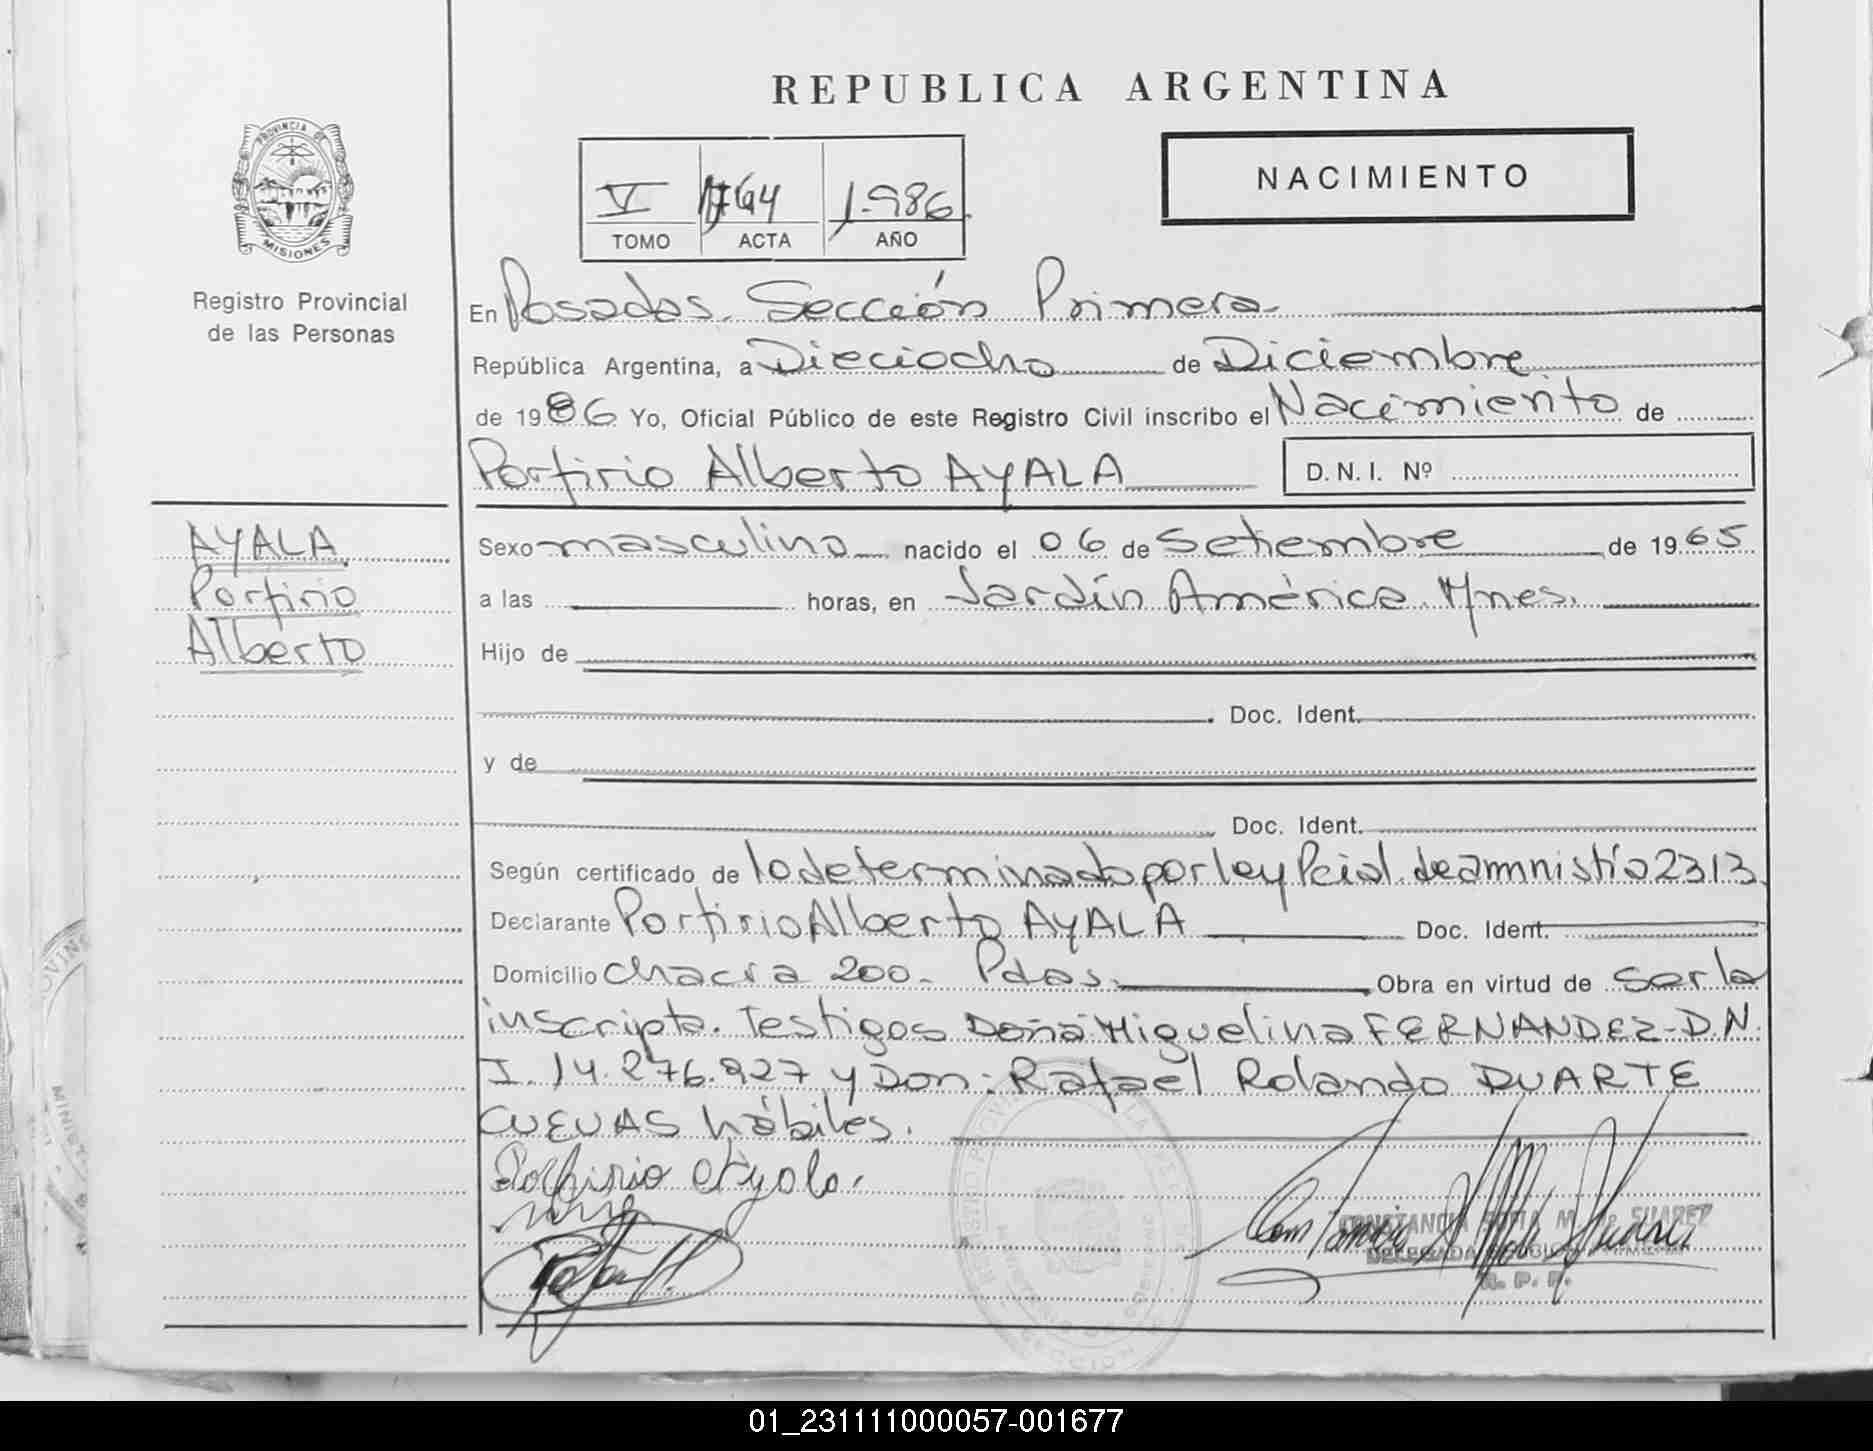 REPUBLICA ARGENTINA
PROVINCIA DE MISIONES
Registro Provincial
de las Personas
V 1764 1.986
TOMO ACTA AÑO
NACIMIENTO
En Posadas. Sección Primera
República Argentina, a Dieciocho de Diciembre
de 1986 Yo, Oficial Público de este Registro Civil inscribo el Nacimiento de
Porfirio Alberto AYALA D.N.I. Nº
AYALA
Porfirio
Alberto
Sexo masculino nacido el 06 de Setiembre de 1965
a las horas, en Jardín América. Mnes.
Hijo de
Doc. Ident.
y de
Doc. Ident.
Según certificado de lo determinado por ley Pcial. de amnistía 2313
Declarante Porfirio Alberto AYALA Doc. Ident.
Domicilio chacra 200. Pdas. Obra en virtud de ser la
inscripta. Testigos Doña Miguelina FERNANDEZ-D.N.
I. 14.276.927 y Don: Rafael Rolando DUARTE
CUEVAS hábiles.
Porfirio Ayala.
CONSTANCIA SOFIA M. de SUAREZ
DELEGADA
R. P. P.
01_231111000057-001677